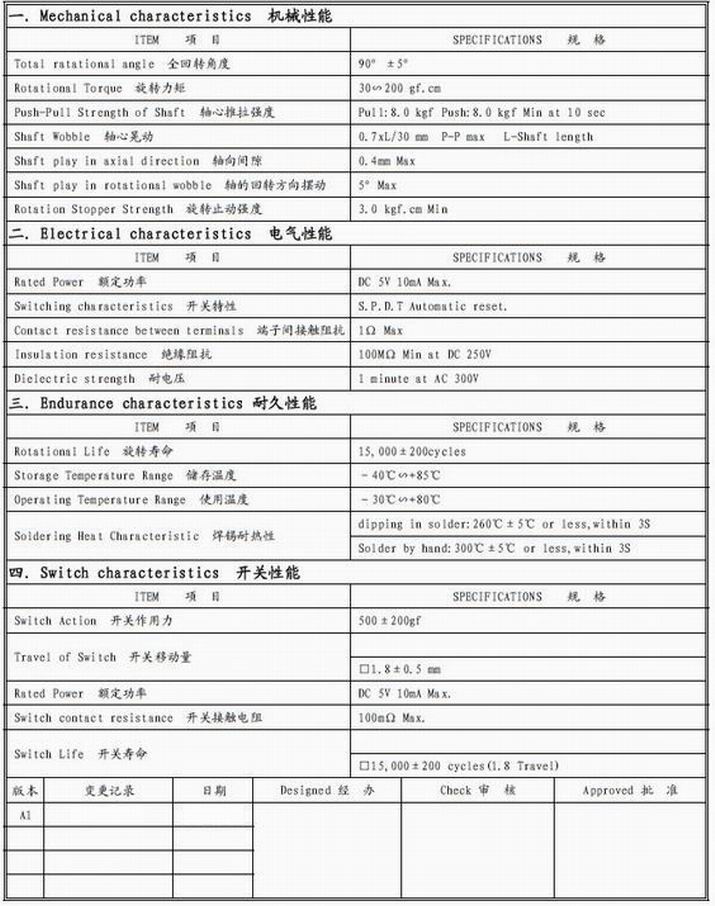 一. Mechanical characteristics 机械性能
ITEM 项 目 SPECIFICATIONS 规 格
Total ratational angle 全回转角度 90° ±5°
Rotational Torque 旋转力矩 30∽200 gf.cm
Push-Pull Strength of Shaft 轴心推拉强度 Pull:8.0 kgf Push:8.0 kgf Min at 10 sec
Shaft Wobble 轴心晃动 0.7xL/30 mm P-P max L-Shaft length
Shaft play in axial direction 轴向间隙 0.4mm Max
Shaft play in rotational wobble 轴的回转方向摆动 5° Max
Rotation Stopper Strength 旋转止动强度 3.0 kgf.cm Min
二. Electrical characteristics 电气性能
ITEM 项 目 SPECIFICATIONS 规 格
Rated Power 额定功率 DC 5V 10mA Max.
Switching characteristics 开关特性 S.P.D.T Automatic reset.
Contact resistance between terminals 端子间接触阻抗 1Ω Max
Insulation resistance 绝缘阻抗 100MΩ Min at DC 250V
Dielectric strength 耐电压 1 minute at AC 300V
三. Endurance characteristics 耐久性能
ITEM 项 目 SPECIFICATIONS 规 格
Rotational Life 旋转寿命 15,000±200cycles
Storage Temperature Range 储存温度 -40℃∽+85℃
Operating Temperature Range 使用温度 -30℃∽+80℃
Soldering Heat Characteristic 焊锡耐热性 dipping in solder:260℃±5℃ or less,within 3S
Solder by hand:300℃±5℃ or less,within 3S
四. Switch characteristics 开关性能
ITEM 项 目 SPECIFICATIONS 规 格
Switch Action 开关作用力 500±200gf
Travel of Switch 开关移动量 □1.8±0.5 mm
Rated Power 额定功率 DC 5V 10mA Max.
Switch contact resistance 开关接触电阻 100mΩ Max.
Switch Life 开关寿命 □15,000±200 cycles(1.8 Travel)
版本 变更记录 日期 Designed 经 办 Check 审 核 Approved 批 准
A1